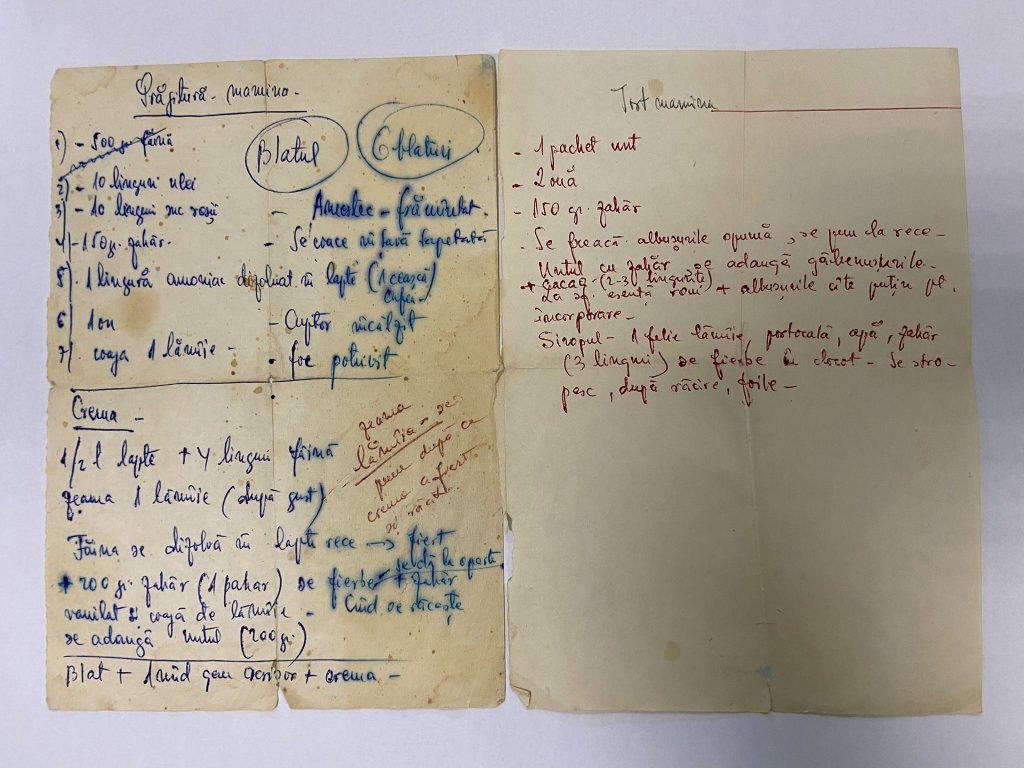 Prăgitură - mamina -
Blatul
6 blaturi
1) - 500 gr făină
2) - 10 linguri ulei
3) - 10 linguri suc roșii
- Amestec - frămîntat
4) - 150 gr. zahăr.
- Se coace în tavă tapetată
5) 1 lingură amoniac dizolvat în lapte (1 ceașcă)
6) 1 ou
- Cuptor încălzit
7) coaja 1 lămîie -
- foc potrivit
Crema -
1/2 l lapte + 4 linguri făină
zeama 1 lămîie (după gust)
zeama
lămîia - se
pune după ce
crema a fiert
și răcit.
Făina se dizolvă în lapte rece → fiert
+ 200 gr. zahăr (1 pahar) se fierbe + zahăr
se dă la o parte
vanilat și coajă de lămîie -
Cînd se răcește
se adaugă untul (200 gr.)
Blat + 1 rînd gem + crema -
Tort mamina
- 1 pachet unt
- 2 ouă
- 150 gr. zahăr
- Se freacă albușurile spumă, se pun la rece -
Untul cu zahăr se adaugă gălbenușurile -
+ cacao (2-3 lingurițe)
esență rom + albușurile cîte puțin pt.
incorporare -
Siropul - 1 felie lămîie, portocală, apă, zahăr
(3 linguri) se fierbe în clocot - Se stro-
pesc, după răcire, foile -